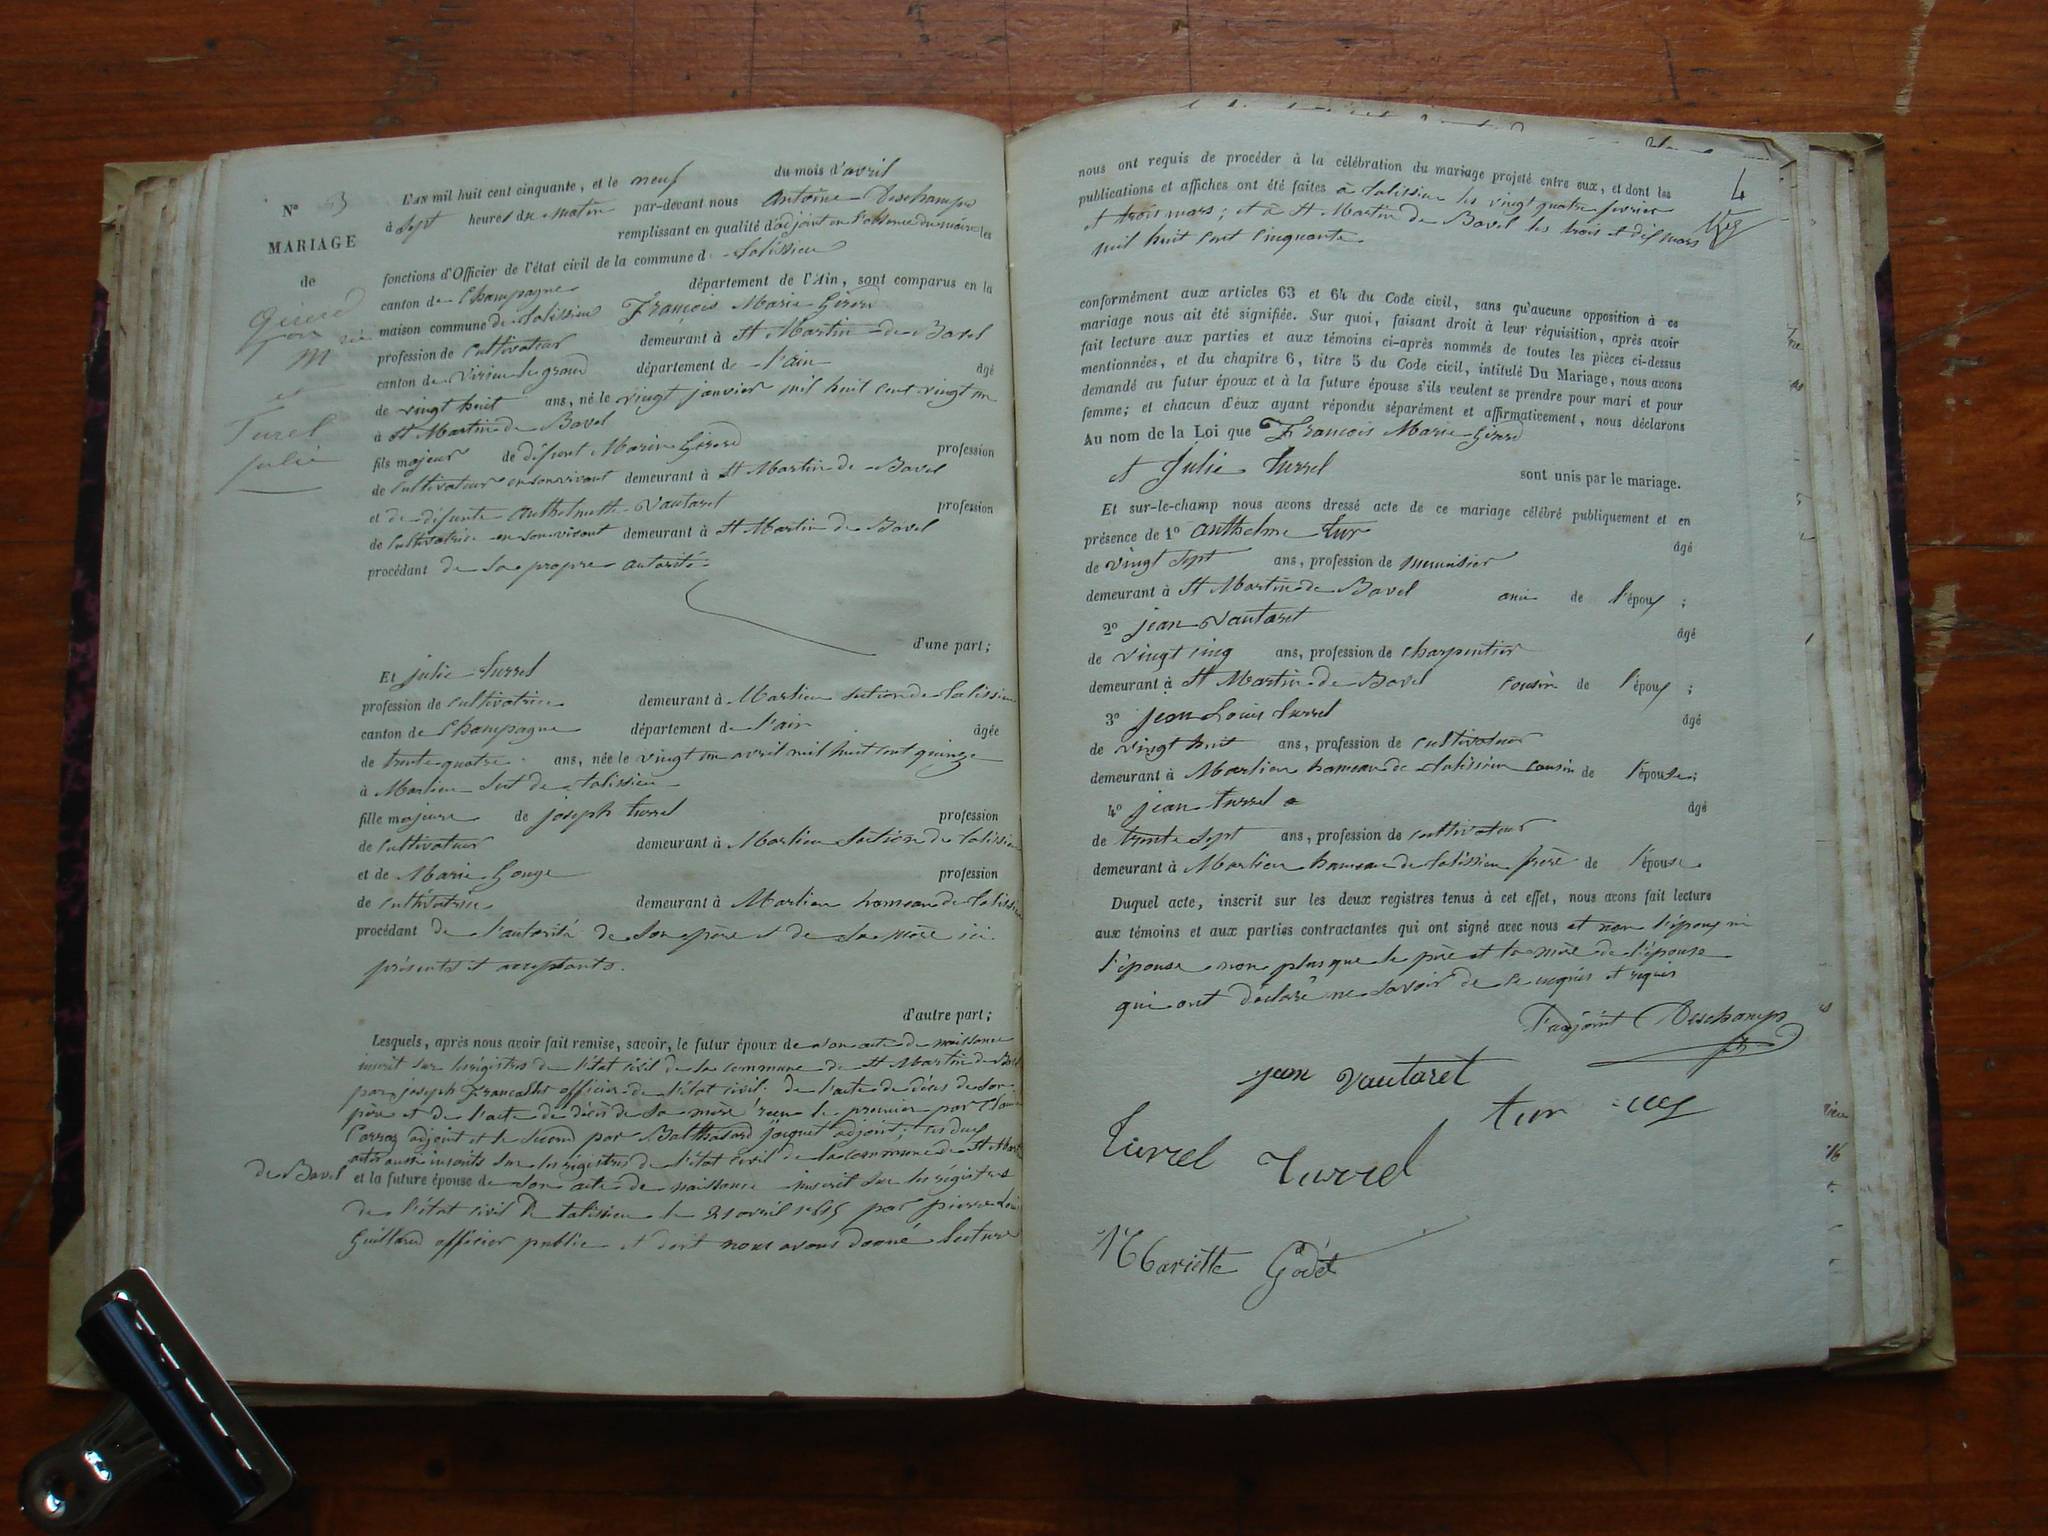 No 3
MARIAGE
de
Girerd
fcois
Mie
et
Turel
Julie
L'an mil huit cent cinquante, et le neuf du mois d'avril
à sept heures du matin par-devant nous Antoine Deschamps
remplissant en qualité d'adjoint en l'absence du maire les
fonctions d'Officier de l'état civil de la commune d talissieu
canton de Champagne département de l'Ain, sont comparus en la
maison commune de talissieu François Marie Girerd
profession de Cultivateur demeurant à St Martin de Bavel
canton de virieu le grand département de l'ain âgé
de vingt huit ans, né le vingt janvier mil huit cent vingt un
à St Martin de Bavel
fils majeur de défunt Marin Girerd profession
de Cultivateur en son vivant demeurant à St Martin de Bavel
et de défunte Anthelmette Vautaret profession
de Cultivatrice en son vivant demeurant à St Martin de Bavel
procédant de sa propre autorité
d'une part;
Et julie turrel
profession de cultivatrice demeurant à Marlieu section de talissieu
canton de Champagne département de l'ain âgée
de trente quatre ans, née le vingt un avril mil huit cent quinze
à Marlieu sect de talissieu
fille majeure de joseph turrel profession
de cultivateur demeurant à Marlieu section de talissieu
et de Marie Gouge profession
de cultivatrice demeurant à Marlieu hameau de talissieu
procédant de l'autorité de son père et de sa mère ici
présents et acceptants.
d'autre part;
Lesquels, après nous avoir fait remise, savoir, le futur époux de son acte de naissance
inscrit sur les régistres de l'état civil de la commune de St Martin de Bavel
par joseph Francallet officier de l'état civil. de l'acte de décès de son
père et de l'acte de décès de sa mère reçu le premier par
Carraz adjoint et le second par Balthasard jacquet adjoint; ces deux
actes aussi inscrits sur les régistres de l'état civil de la commune de St Martin
de Bavel et la future épouse de son acte de naissance inscrit sur les régistres
de l'état civil de talissieu le 21 avril 1815 par pierre Louis
Guilland officier public et dont nous avons donné lecture
4
nous ont requis de procéder à la célébration du mariage projeté entre eux, et dont les
publications et affiches ont été faites à talissieu les vingt quatre fevrier
et trois mars; et à St Martin de Bavel les trois et dix mars
mil huit cent cinquante
conformément aux articles 63 et 64 du Code civil, sans qu'aucune opposition à ce
mariage nous ait été signifiée. Sur quoi, faisant droit à leur réquisition, après avoir
fait lecture aux parties et aux témoins ci-après nommés de toutes les pièces ci-dessus
mentionnées, et du chapitre 6, titre 5 du Code civil, intitulé Du Mariage, nous avons
demandé au futur époux et à la future épouse s'ils veulent se prendre pour mari et pour
femme; et chacun d'eux ayant répondu séparément et affirmativement, nous déclarons
Au nom de la Loi que François Marie Girerd
et Julie turrel sont unis par le mariage.
Et sur-le-champ nous avons dressé acte de ce mariage célébré publiquement et en
présence de 1o Anthelme tur âgé
de vingt sept ans, profession de menuisier
demeurant à St Martin de Bavel ami de l'époux ;
2o jean Vautaret âgé
de vingt cinq ans, profession de charpentier
demeurant à St Martin de Bavel cousin de l'époux ;
3o jean Louis turrel âgé
de vingt huit ans, profession de cultivateur
demeurant à Marlieu hameau de talissieu cousin de l'épouse;
4o jean turrel âgé
de trente sept ans, profession de cultivateur
demeurant à Marlieu hameau de talissieu frère de l'épouse
Duquel acte, inscrit sur les deux registres tenus à cet effet, nous avons fait lecture
aux témoins et aux parties contractantes qui ont signé avec nous et non l'époux ni
l'épouse non plus que le père et la mère de l'épouse
qui ont déclaré ne savoir de ce enquis et requis
l'adjoint Deschamps
jean vautaret
tur
Turrel Turrel
Mariette Godet